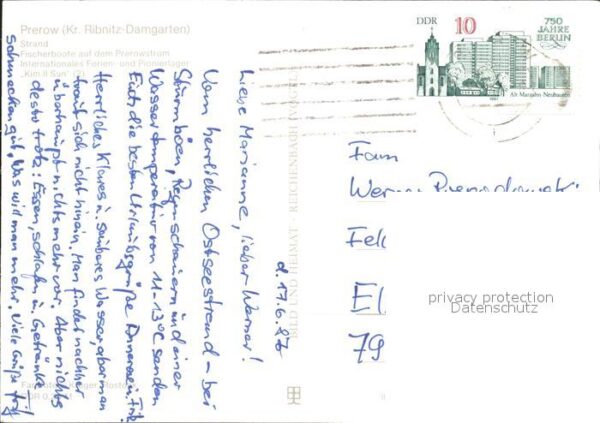 Prerow (Kr. Ribnitz-Damgarten)
Strand
Fischerboote auf dem Prerowstrom
Internationales Ferien- und Pionierlager
„Kim Il Sun" (2)
d. 17.6.87
Liebe Marianne, lieber Werner!
Vom herrlichen Ostseestrand – bei
Sturmböen, Regenschauern und einer
Wassertemperatur von 11-13°C senden
Euch die besten Urlaubsgrüße Annerose u. Fritz
Herrliches klares u. sauberes Wasser, aber man
traut sich nicht hinein. Man findet nachher
überhaupt nichts mehr vor. Aber nichts
desto trotz: Essen, schlafen u. Getränke
schmecken gut, was will man mehr. Viele Grüße
BILD UND HEIMAT REICHENBACH (VOGTL)
DDR 10
750 JAHRE BERLIN
Alt Marzahn Neubauten
1987
Fam
Werner
Fell
El
79
privacy protection
Datenschutz